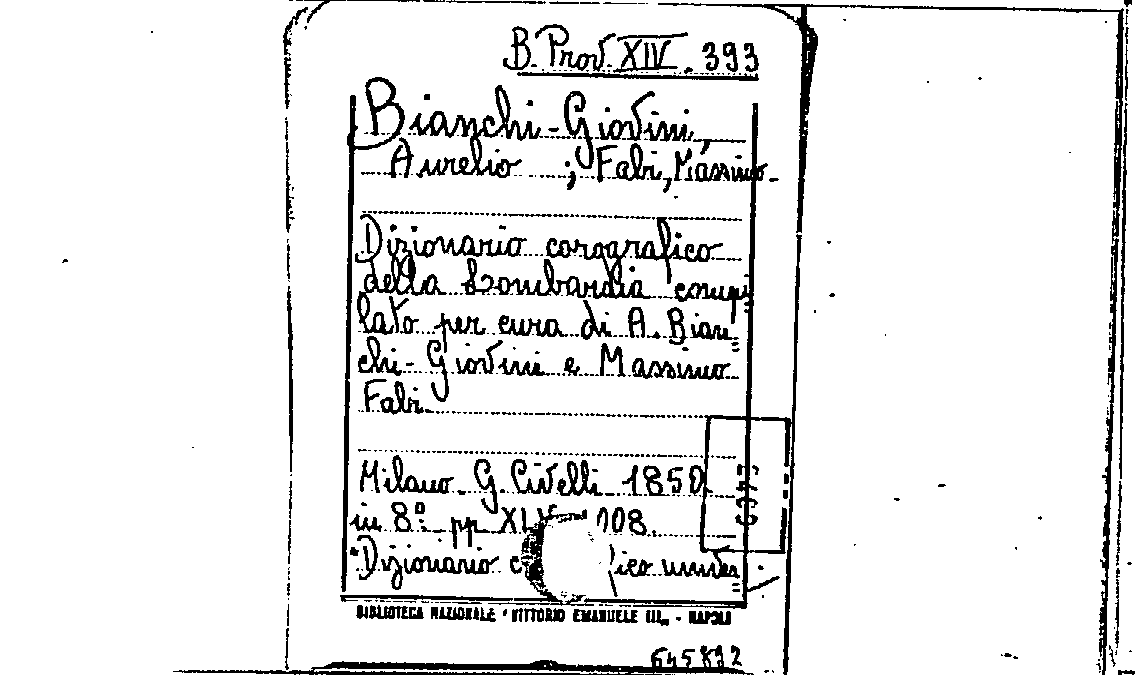 B. Prov. XIV. 393
Bianchi-Giovini,
Aurelio ; Fabi, Massimo
Dizionario corografico
della Lombardia compi
lato per cura di A. Bian=
chi-Giovini e Massimo
Fabi.
Milano. G. Civelli 1850.
in 8º pp 008.
"Dizionario univer
BIBLIOTECA NAZIONALE "VITTORIO EMANUELE III„ - NAPOLI
645832